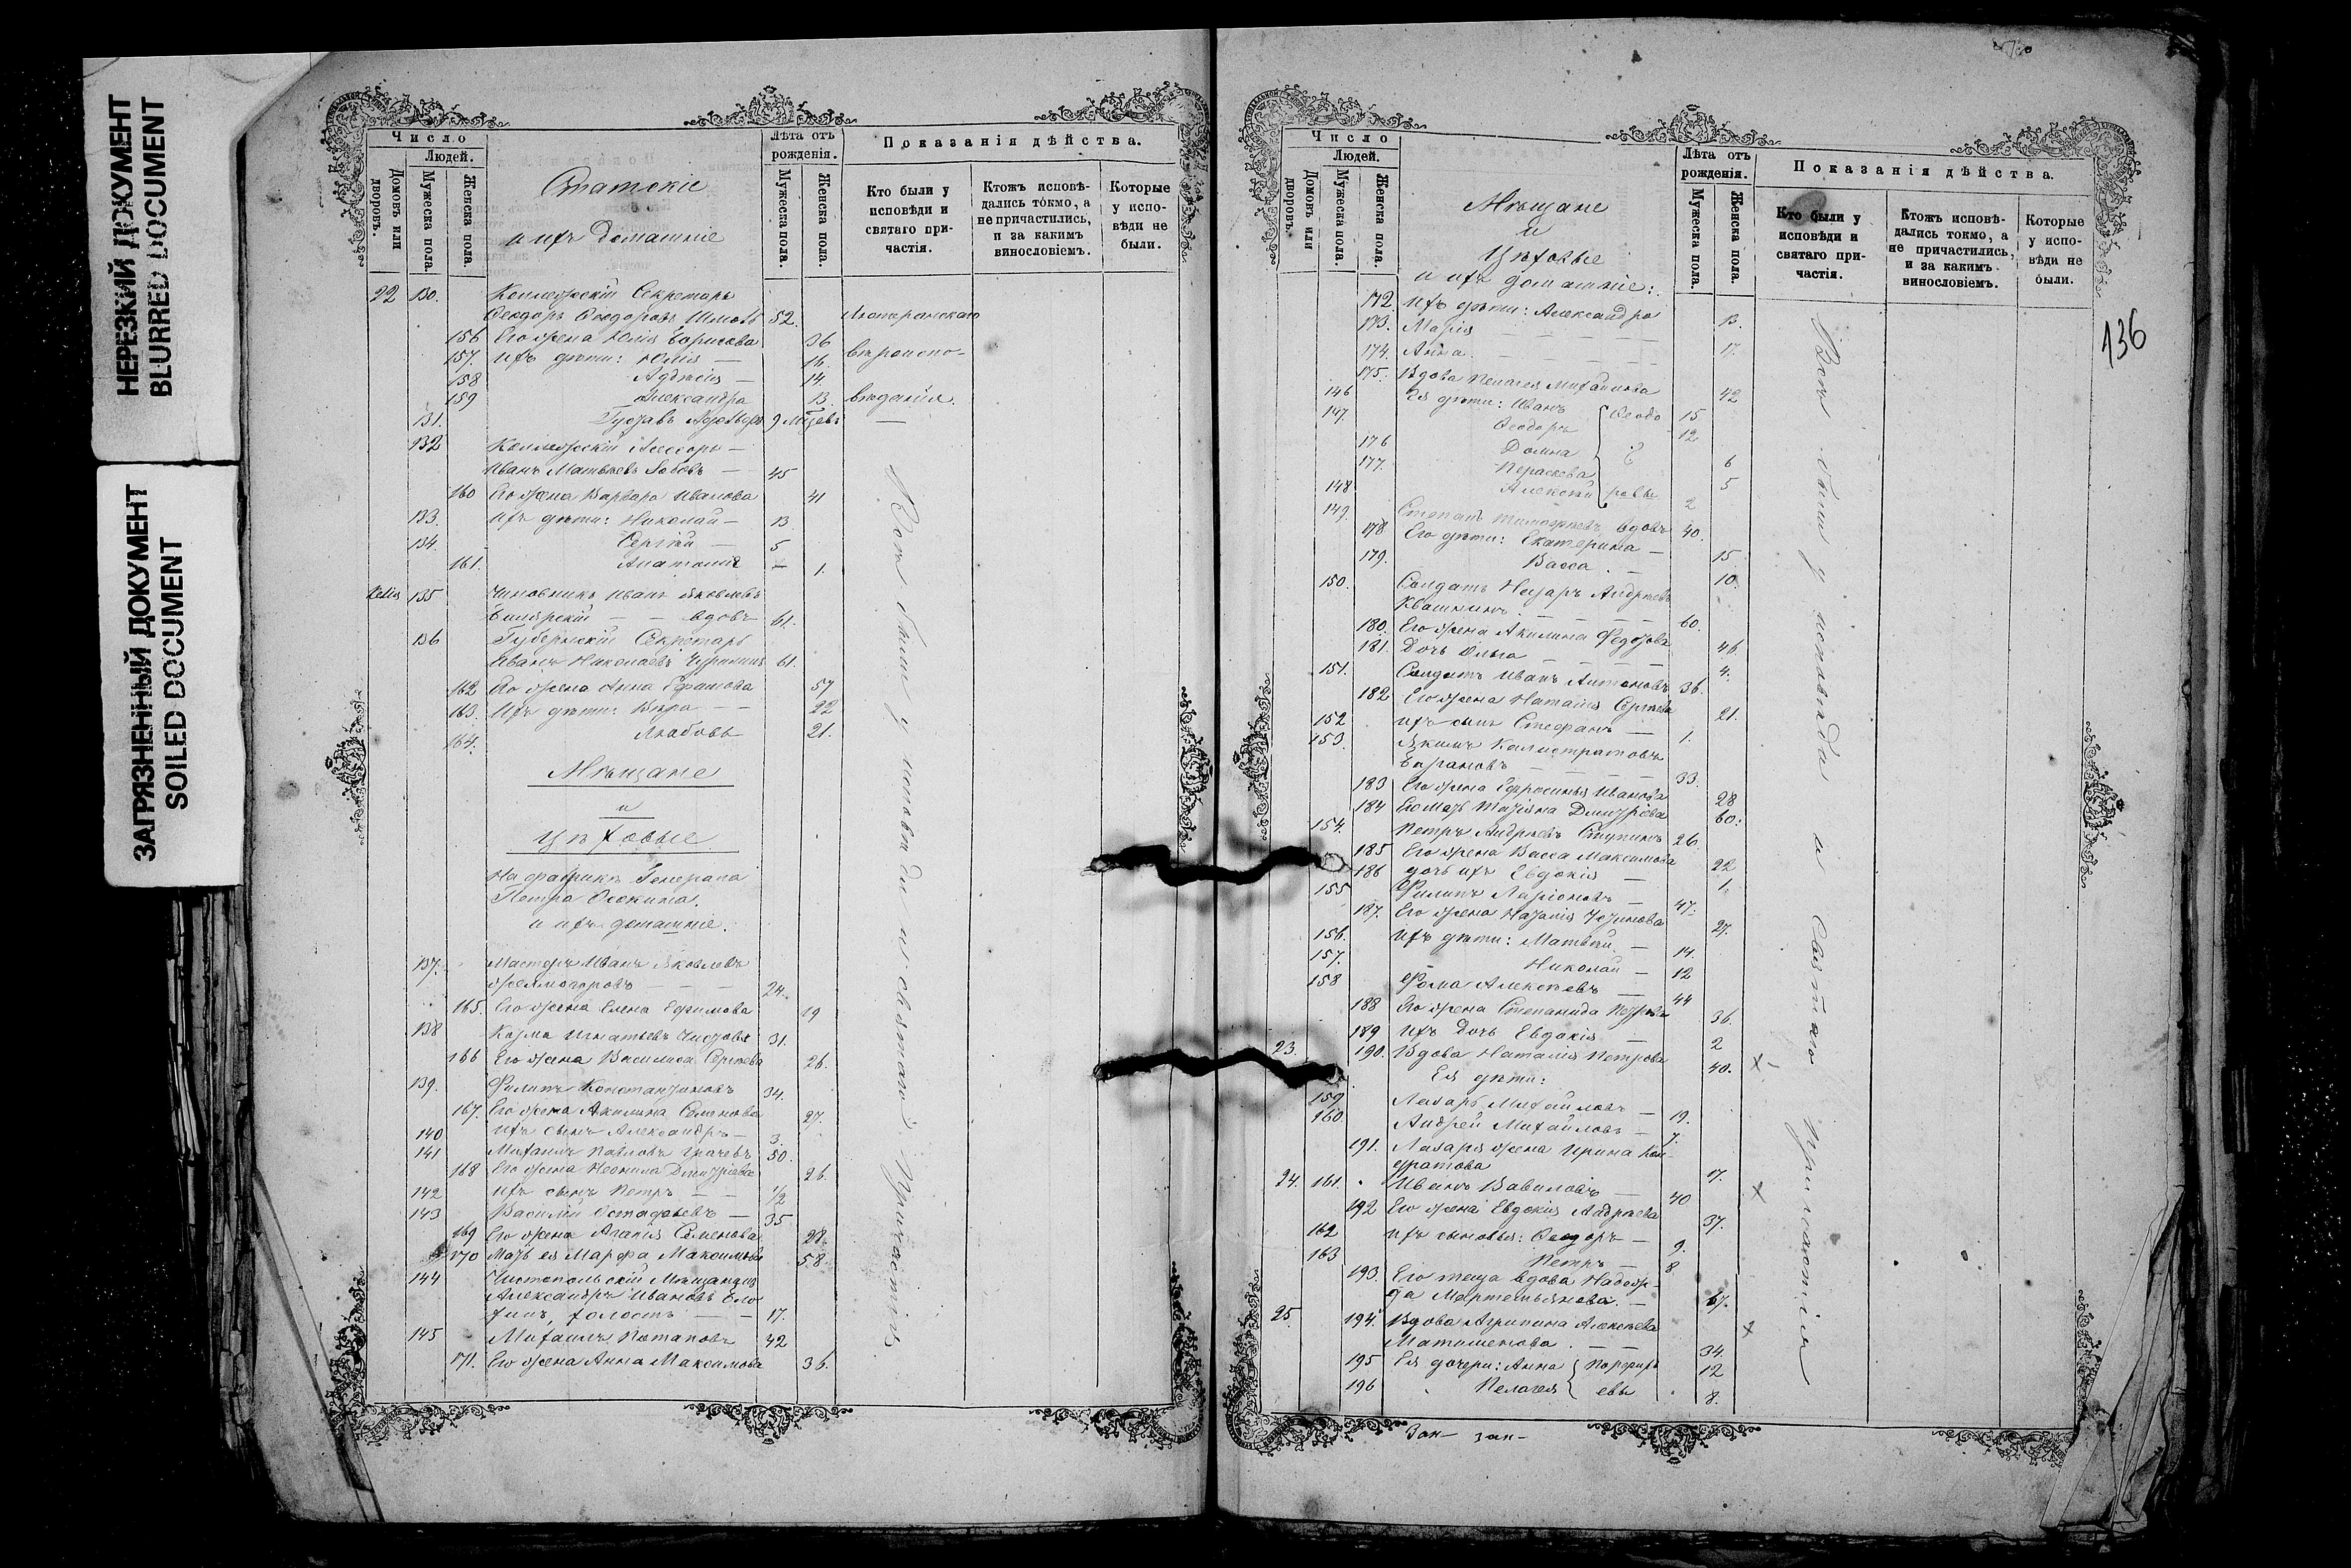 НЕРЕЗКИЙ ДОКУМЕНТ
BLURRED DOCUMENT
ЗАГРЯЗНЕННЫЙ ДОКУМЕНТ
SOILED DOCUMENT
Число
Людей.
Домовъ или дворовъ.
Мужеска пола.
Женска пола.
Статскіе
и ихъ домашніе
Лѣта отъ рожденія.
Мужеска пола.
Женска пола.
Показанія дѣйства.
Кто были у исповѣди и святаго причастія.
Ктожъ исповѣдались токмо, а не причастились, и за какимъ винословіемъ.
Которые у исповѣди не были.
22 130. Коллежскій Секретарь
Ѳеодоръ Ѳеодоровъ 52. Лютеранскаго
156 Его жена Юлія Борисова 36
157. Ихъ дѣти: Юлія — 16. вѣроиспо-
158 — 14.
159 Александра 13. вѣданія.
131. Густавъ 9 —
132 Коллежскій Ассесоръ —
Иванъ Матвѣевъ — 45
160 Его жена Варвара Иванова 41
133. Ихъ дѣти: Николай — 13
134. Сергѣй — 5
161. — 1.
135 Чиновникъ Иванъ Яковлевъ
— — вдовъ 61.
136 Губернскій Секретарь
Иванъ Николаевъ 61.
162 Его жена Анна 57
163. Ихъ дѣти: Вѣра — — 22
164. Любовь 21.
Мѣщане
и
Цѣховые
На фабрикѣ Генерала
Петра Осокина.
и ихъ домашніе.
137. Мастеръ Иванъ Яковлевъ
— — — 24.
165. Его жена Елена Ефимова 19
138 Козма Игнатьевъ 31.
166 Его жена Василиса Сергѣева 26.
139. Филипъ Константиновъ 34.
167. Его жена Акилина Семенова 27.
140 Ихъ сынъ Александръ — 3.
141 Михаилъ Павловъ Грачевъ 50.
168 Его жена Неонила Дмитріева 26.
142 Ихъ сынъ Петръ — — 1/2
143 Василій Остафьевъ — 35
169 Его жена Агапія Семенова 28.
170 Мать ея Марфа Максимова 58.
144 Чистопольскій Мѣщанинъ
Александръ Ивановъ
холостъ — — 17.
145 Михаилъ Потаповъ 42
171. Его жена Анна Максимова 36.
Всѣ были у исповѣди и святаго Причастія
136
Число
Людей.
Домовъ или дворовъ.
Мужеска пола.
Женска пола.
Мѣщане
и
Цѣховые
и ихъ домашніе:
Лѣта отъ рожденія.
Мужеска пола.
Женска пола.
Показанія дѣйства.
Кто были у исповѣди и святаго причастія.
Ктожъ исповѣдались токмо, а не причастились, и за какимъ винословіемъ.
Которые у исповѣди не были.
172 Ихъ дѣти: Александра 13.
173. Марія — — — — 17.
174. Анна. — — — —
175. Вдова Пелагея Михайлова 42
146 Ея дѣти: Иванъ Ѳеодо 15
147. Ѳеодоръ 12.
176 Домна 6
177. Пераскева 5
148 Алексѣй ровы 2
149. Степанъ Тимофѣевъ вдовъ 40.
178 Его дѣти: Екатерина — 15.
179. Васса. — 10.
150. Солдатъ Назаръ Андреевъ
Квашнинъ. — — — 60.
180. Его жена Акилина Федорова 46.
181. Дочь Ольга — — — 4.
151. Солдатъ Иванъ Антоновъ 36.
182 Его жена Наталія Сергѣева 21.
152 Ихъ сынъ Стефанъ — 1.
153. Якимъ Калистратовъ
Барановъ — — — 33.
183 Его жена Ефросинья Иванова 28
184 Его мать Татіяна Дмитріева 60.
154. Петръ Андреевъ Ступинъ 26.
185 Его жена Васса Максимова 22
186 дочь ихъ Евдокія — 1.
155 Филипъ Ларіоновъ — 47.
187. Его жена Наталія 27.
156. Ихъ дѣти: Матвѣй — 14.
157. Николай — 12
158 Фома Алексѣевъ — 44
188 Его жена Степанида Петрова 36.
189 Ихъ Дочь Евдокія — 2
23. 190. Вдова Наталія Петрова 40. ×
Ея дѣти:
159 Лазарь Михайловъ — 19.
160. Андрей Михайловъ — 7.
191. Лазаря жена Ирина Кон-
дратова 17.
24. 161. Иванъ Вавиловъ — 40 ×
192 Его жена Евдокія Андреева 37.
162 Ихъ сыновья: Ѳеодоръ — 9.
163 Петръ — 8.
193. Его теща вдова Надеж-
да Мартемьянова. — 67.
25. 194. Вдова Агрипина Алексѣева ×
. — — 34.
195 Ея дочери: Анна Порфирь 12
196 Пелагея евы 8.
Всѣ были у исповѣди и Святаго Причастія